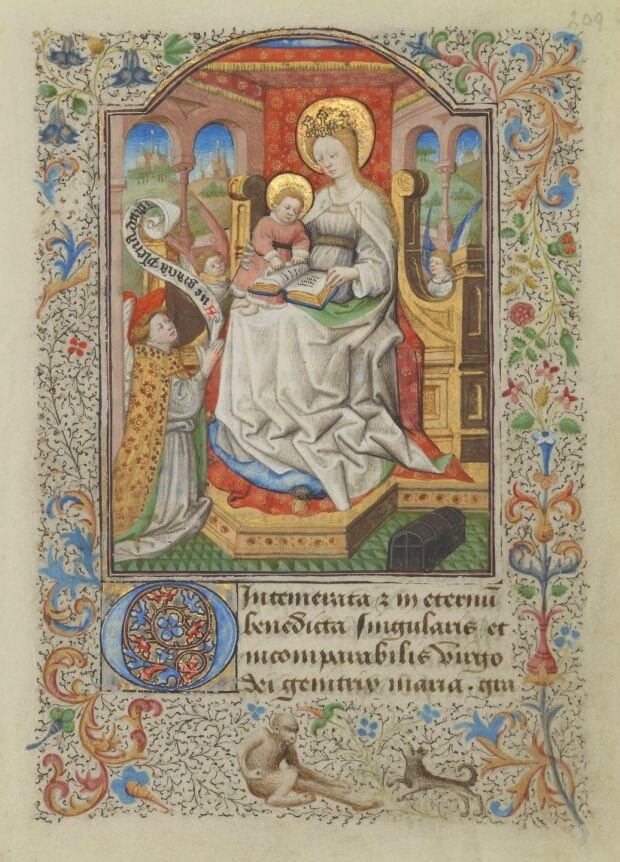 209
Aue gracia plena
O Intemerata ⁊ in eternū
benedicta singularis et
incomparabilis virgo
dei genitrix maria. gra